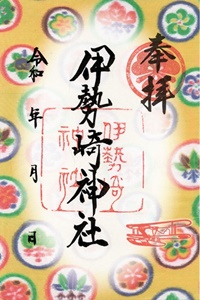 奉拝
伊勢崎神社
伊勢崎
神社
令和 年 月 日